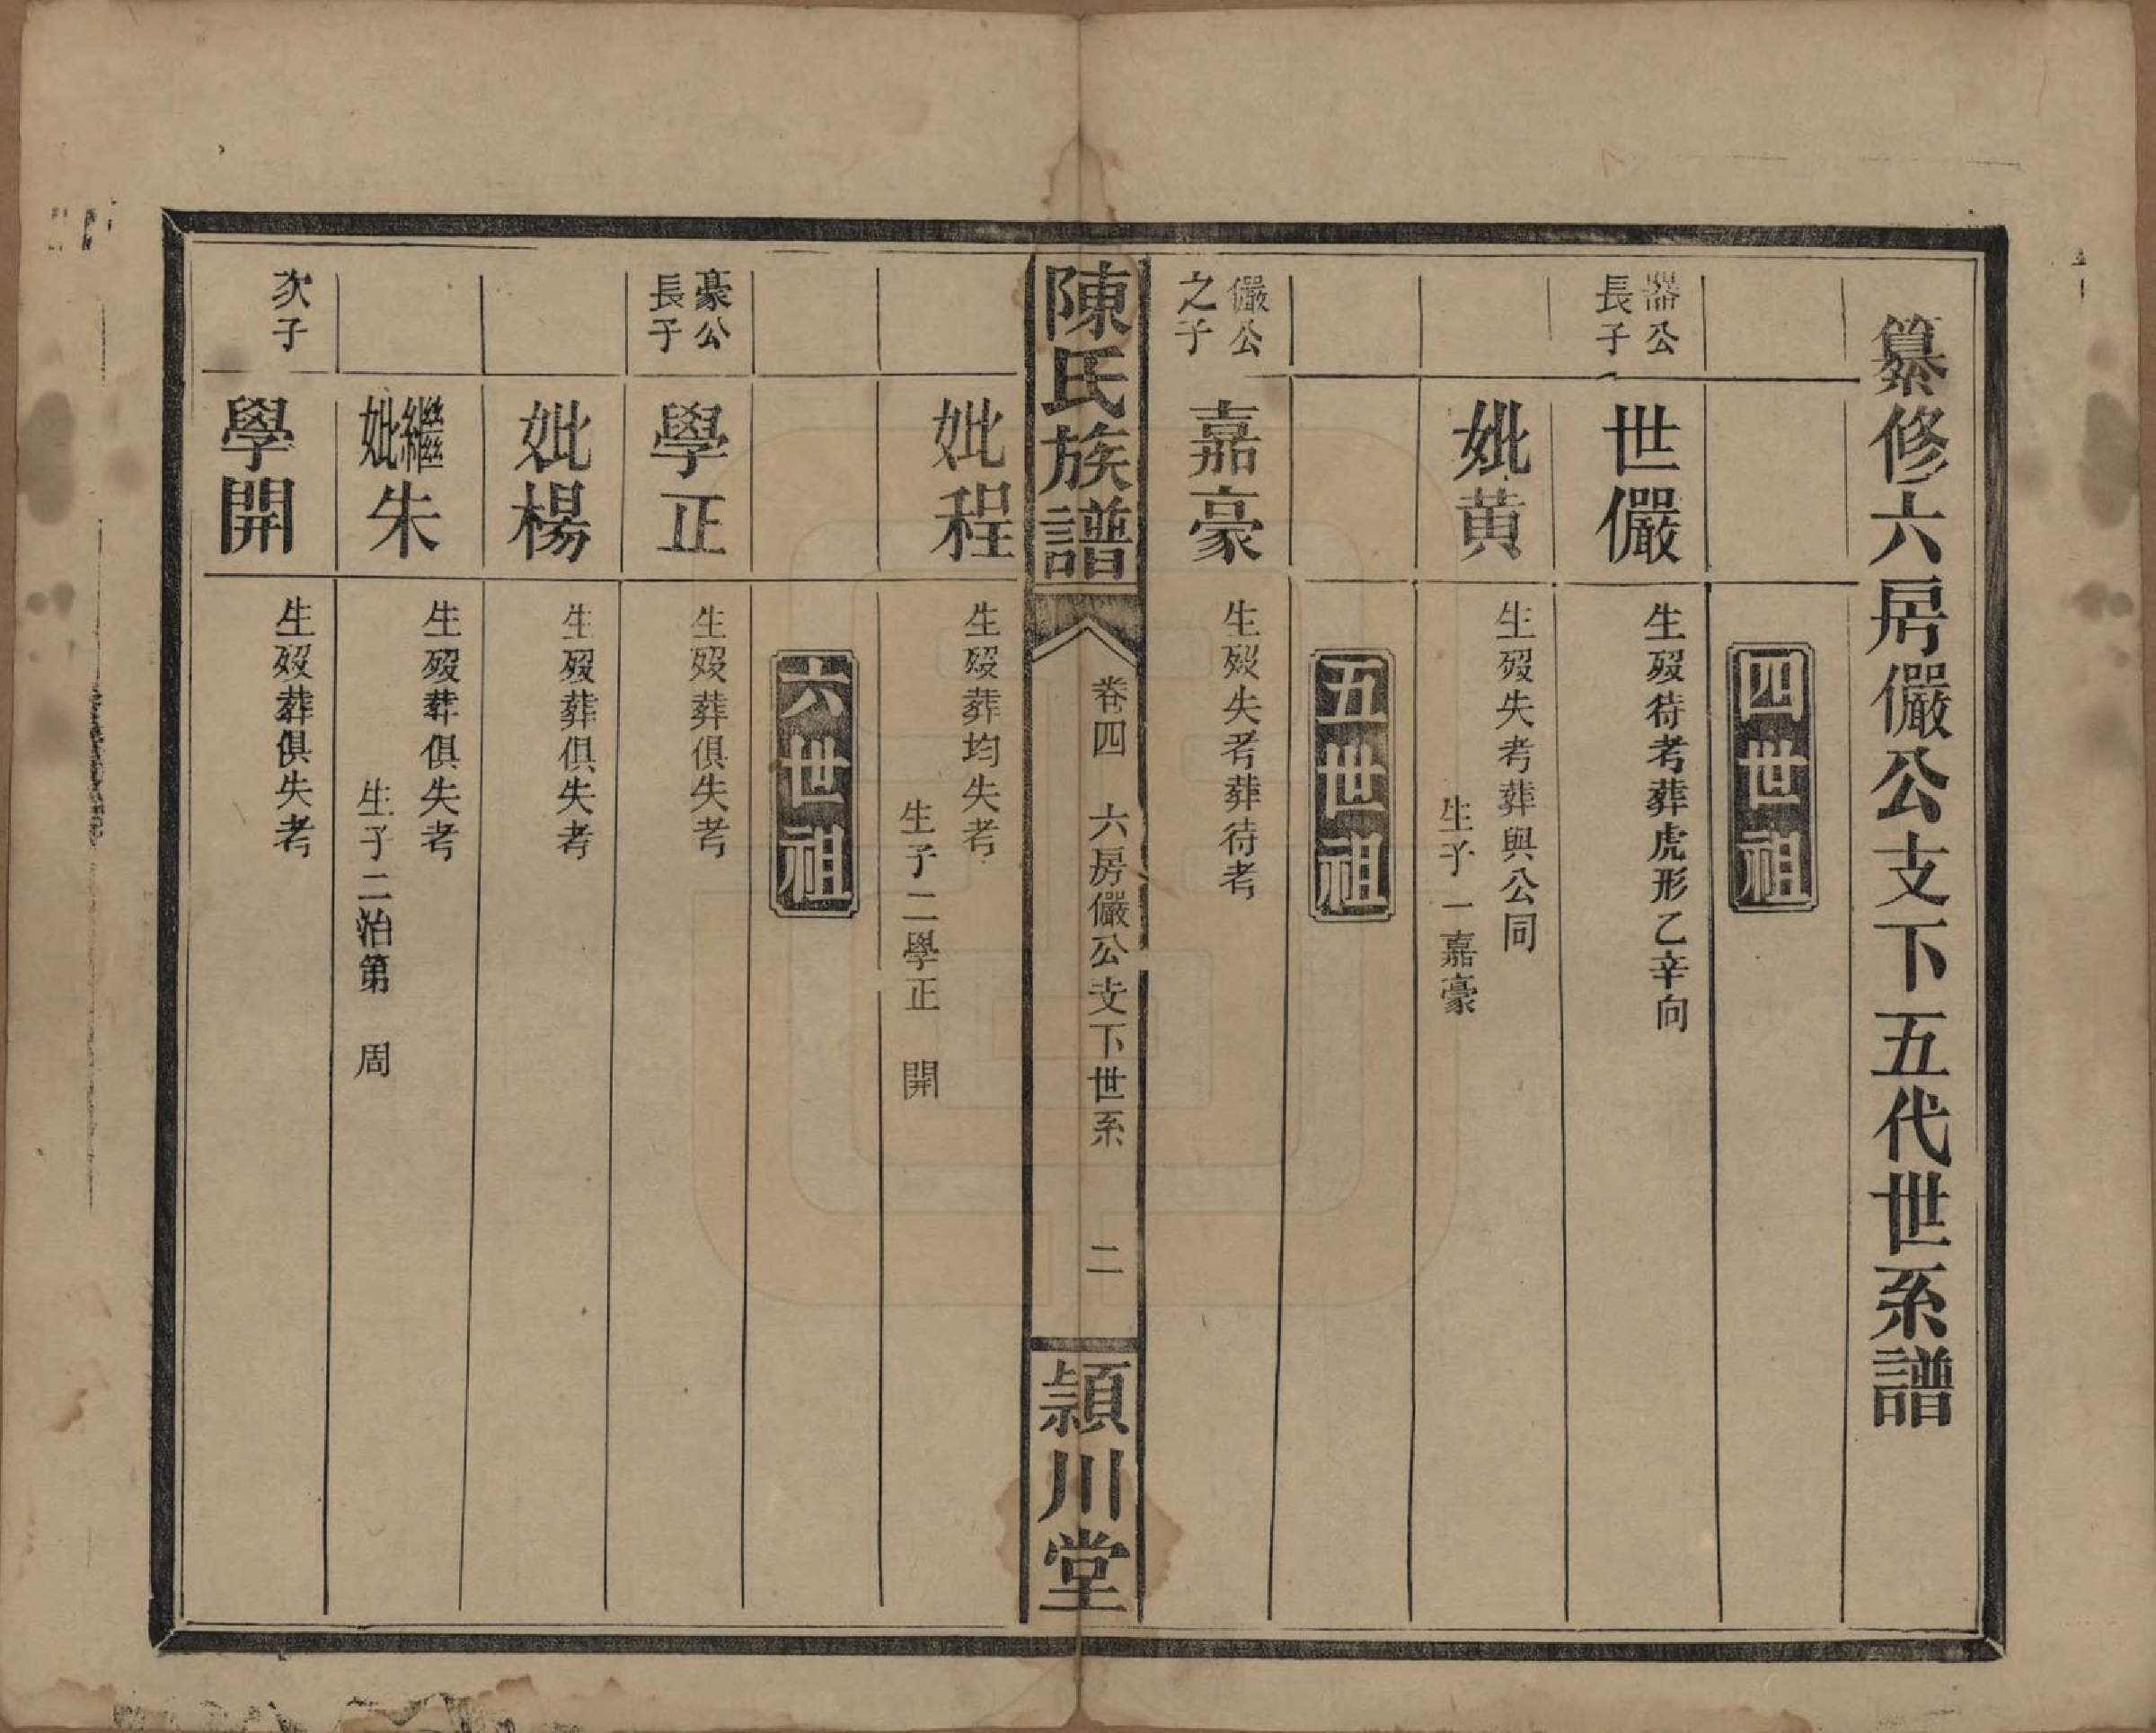 纂修六房儼公支下五代世系譜
四世祖
器公
長子
世儼
生歿待考葬虎形乙辛向
妣黄
生歿失考葬與公同
生子一嘉豪
五世祖
儼公
之子
嘉豪
生歿失考葬待考
陳氏族譜
卷四 六房儼公支下世系 二
潁川堂
妣程
生歿葬均失考
生子二學正 開
六世祖
豪公
長子
學正
生歿葬俱失考
妣楊
生歿葬俱失考
繼妣朱
生歿葬俱失考
生子二治第 周
次子
學開
生歿葬俱失考